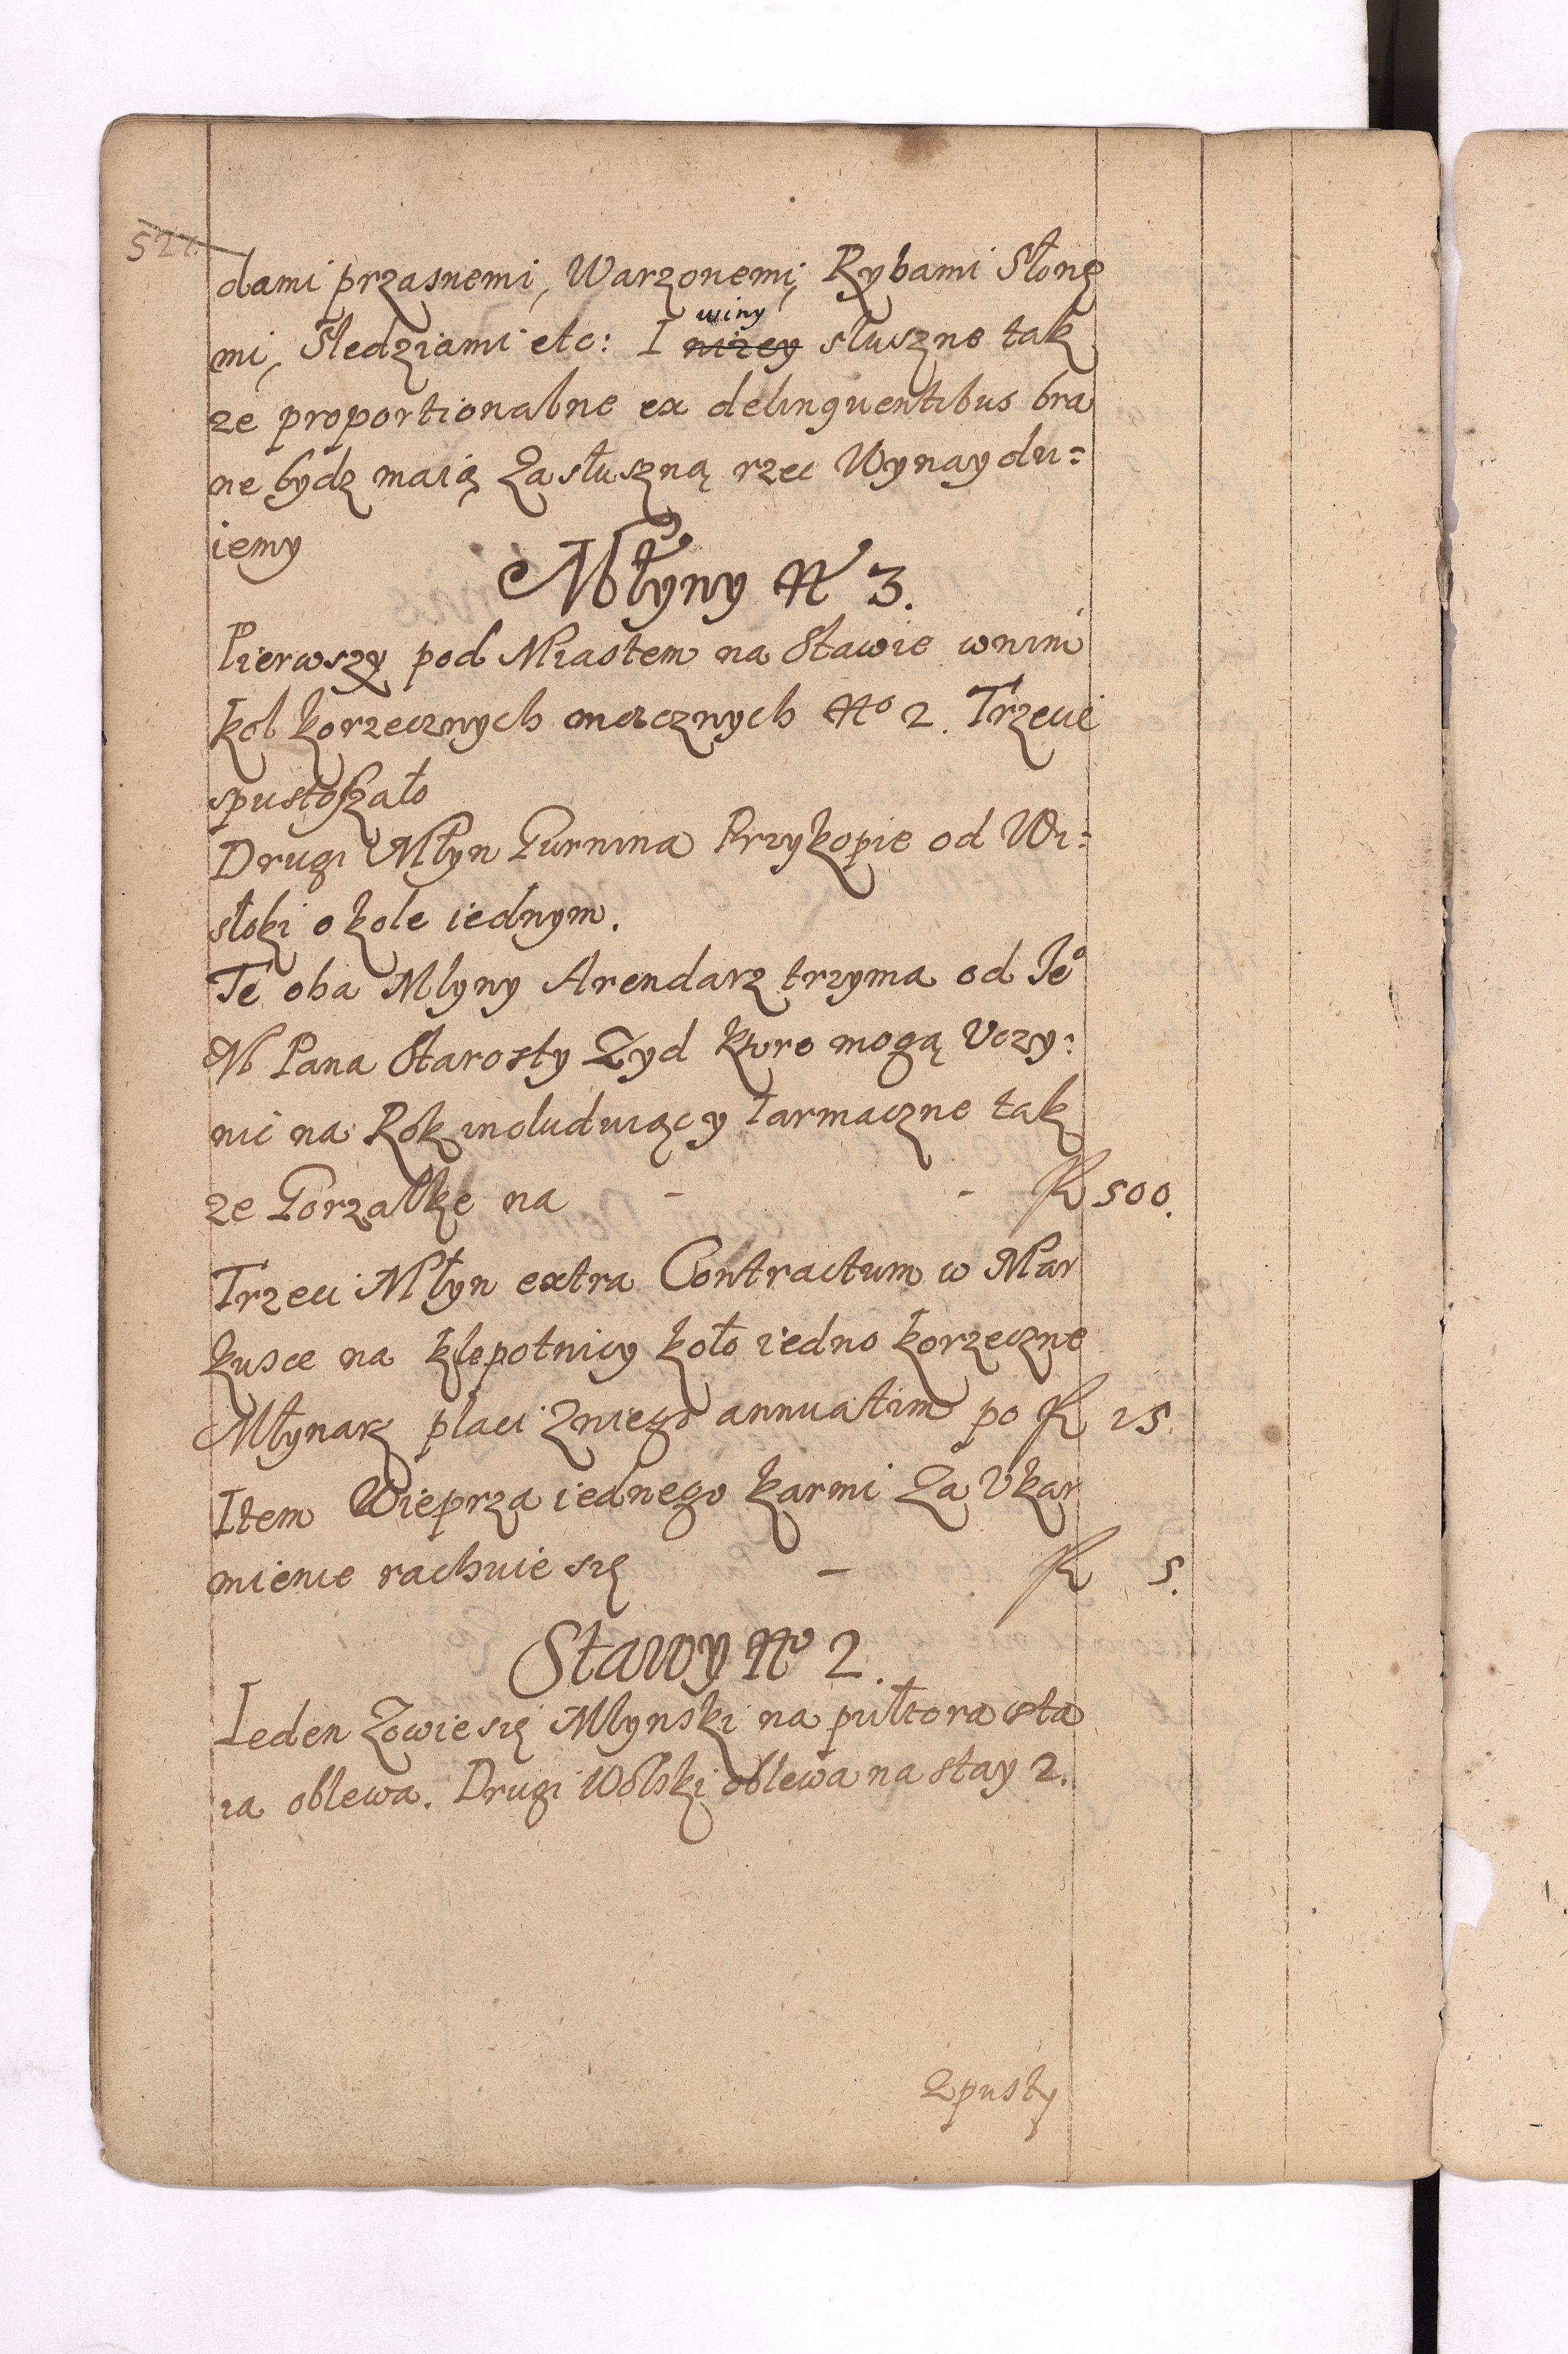 dami przasnemi, Warzonemi, Rybami Słone
mi, Sledziami etc: I winy słuszne tak
ze proportionalne ex delinquentibus bra
ne bydz maią Za słuszną rzec Wynaydu=
iemy
Młyny No 3.
Pierwszy pod Miastem na Stawie wnim
kół korzecznych mącznych No 2. Trzecie
spustoszało
Drugi Młyn Gurnina Przykopie od Wi=
słoki o kole iednym.
Te oba Mlyny Arendarz trzyma od Ieo
M Pana Starosty Zyd ktore mogą Vczy:
nic na Rok includuiący Iarmaczne tak
ze Gorzałkę na - - fl 500.
Trzeci Młyn extra Contractum w Mar
kusce na Klepotnicy koło iedno korzeczne
Młynarz placi Zniego annuatim po fl 15.
Item Wieprza iednego karmi Za Vkar
mienie rachuie się - fl 5.
Stawy No 2.
Ieden Zowie się Mlynski na pułtora sta
ia oblewa. Drugi Wolski oblewa na stay 2.
Zpusty